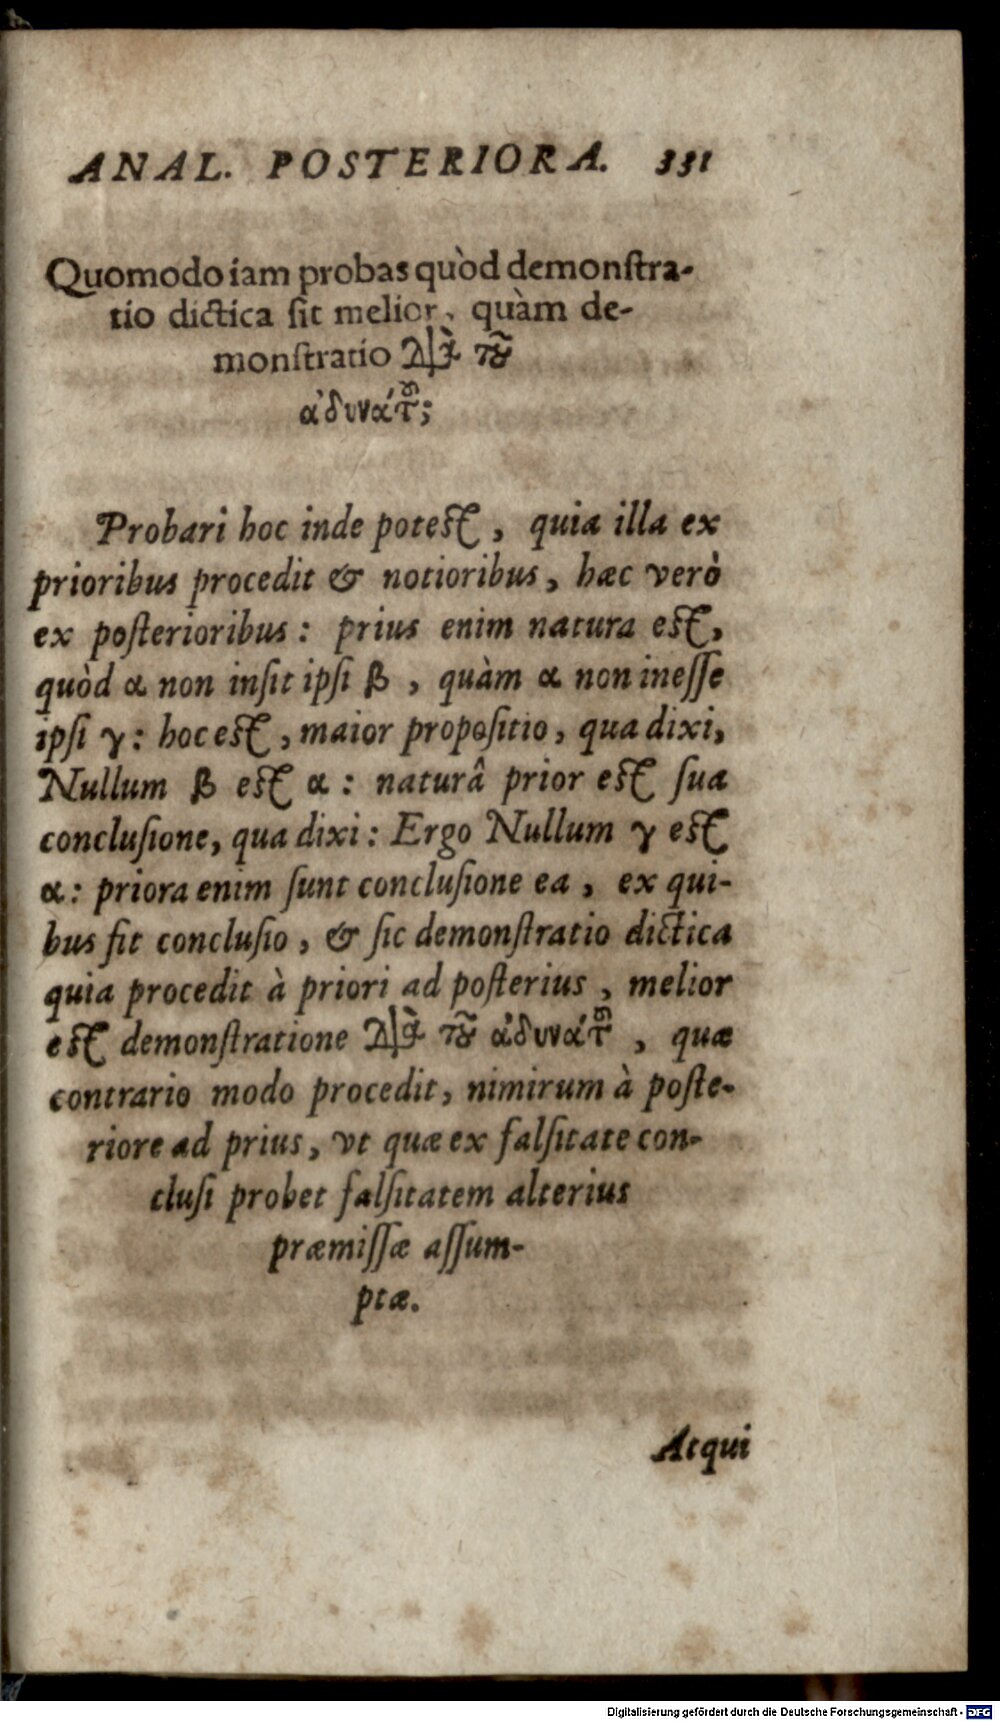 ANAL. POSTERIORA. 331
Quomodo iam probas quòd demonſtra-
tio dictica ſit melior, quàm de-
monſtratio διὰ τοῦ
ἀδυνάτου;
Probari hoc inde poteſt, quia illa ex
prioribus procedit & notioribus, hæc verò
ex poſterioribus: prius enim natura eſt,
quòd α non inſit ipſi β, quàm α non ineſſe
ipſi γ: hoc eſt, maior propoſitio, qua dixi,
Nullum β eſt α: naturâ prior eſt ſua
concluſione, qua dixi: Ergo Nullum γ eſt
α: priora enim ſunt concluſione ea, ex qui-
bus fit concluſio, & ſic demonſtratio dictica
quia procedit à priori ad poſterius, melior
eſt demonſtratione διὰ τοῦ ἀδυνάτου, quæ
contrario modo procedit, nimirum à poſte-
riore ad prius, vt quæ ex falſitate con-
cluſi probet falſitatem alterius
præmiſſæ aſſum-
ptæ.
Atqui
Digitalisierung gefördert durch die Deutsche Forschungsgemeinschaft - DFG